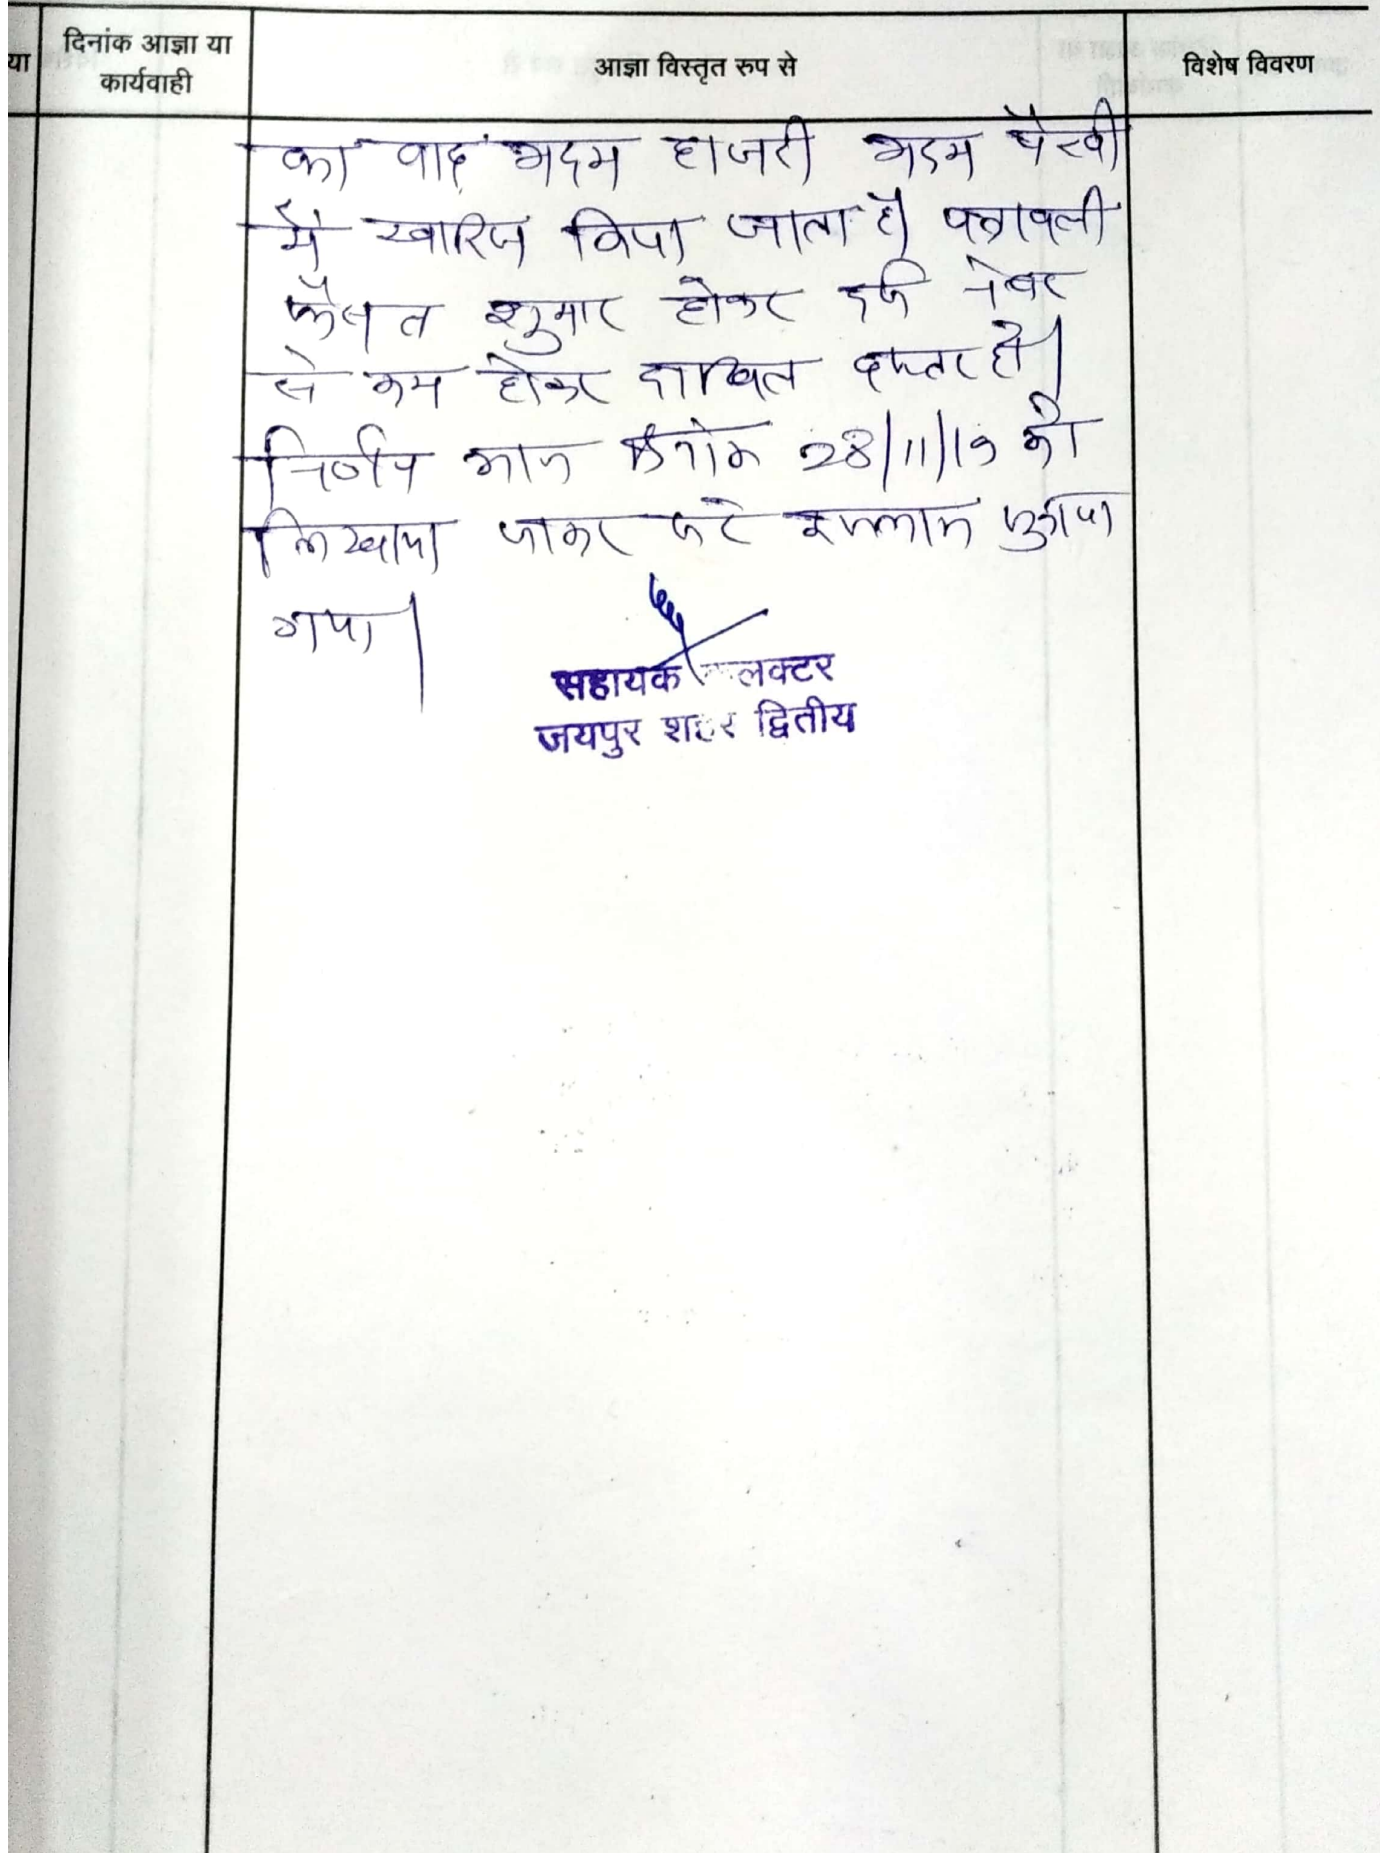 या
दिनांक आज्ञा या
कार्यवाही
आज्ञा विस्तृत रुप से
विशेष विवरण
का वाद अदम हाजरी अदम पैरवी
मे खारिज किया जाता है। पत्रावली
फैसल शुमार होकर दर्ज नंबर
से कम होकर दाखिल दफ्तर हो।
निर्णय आज दिनांक 28/11/19 को
लिखाया जाकर सरे इजलास सुनाया
गया।
सहायक लक्टर
जयपुर शहर द्वितीय